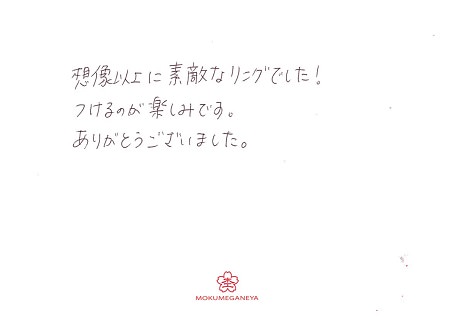 想像以上に素敵なリングでした！
つけるのが楽しみです。
ありがとうございました。
杢
MOKUMEGANEYA